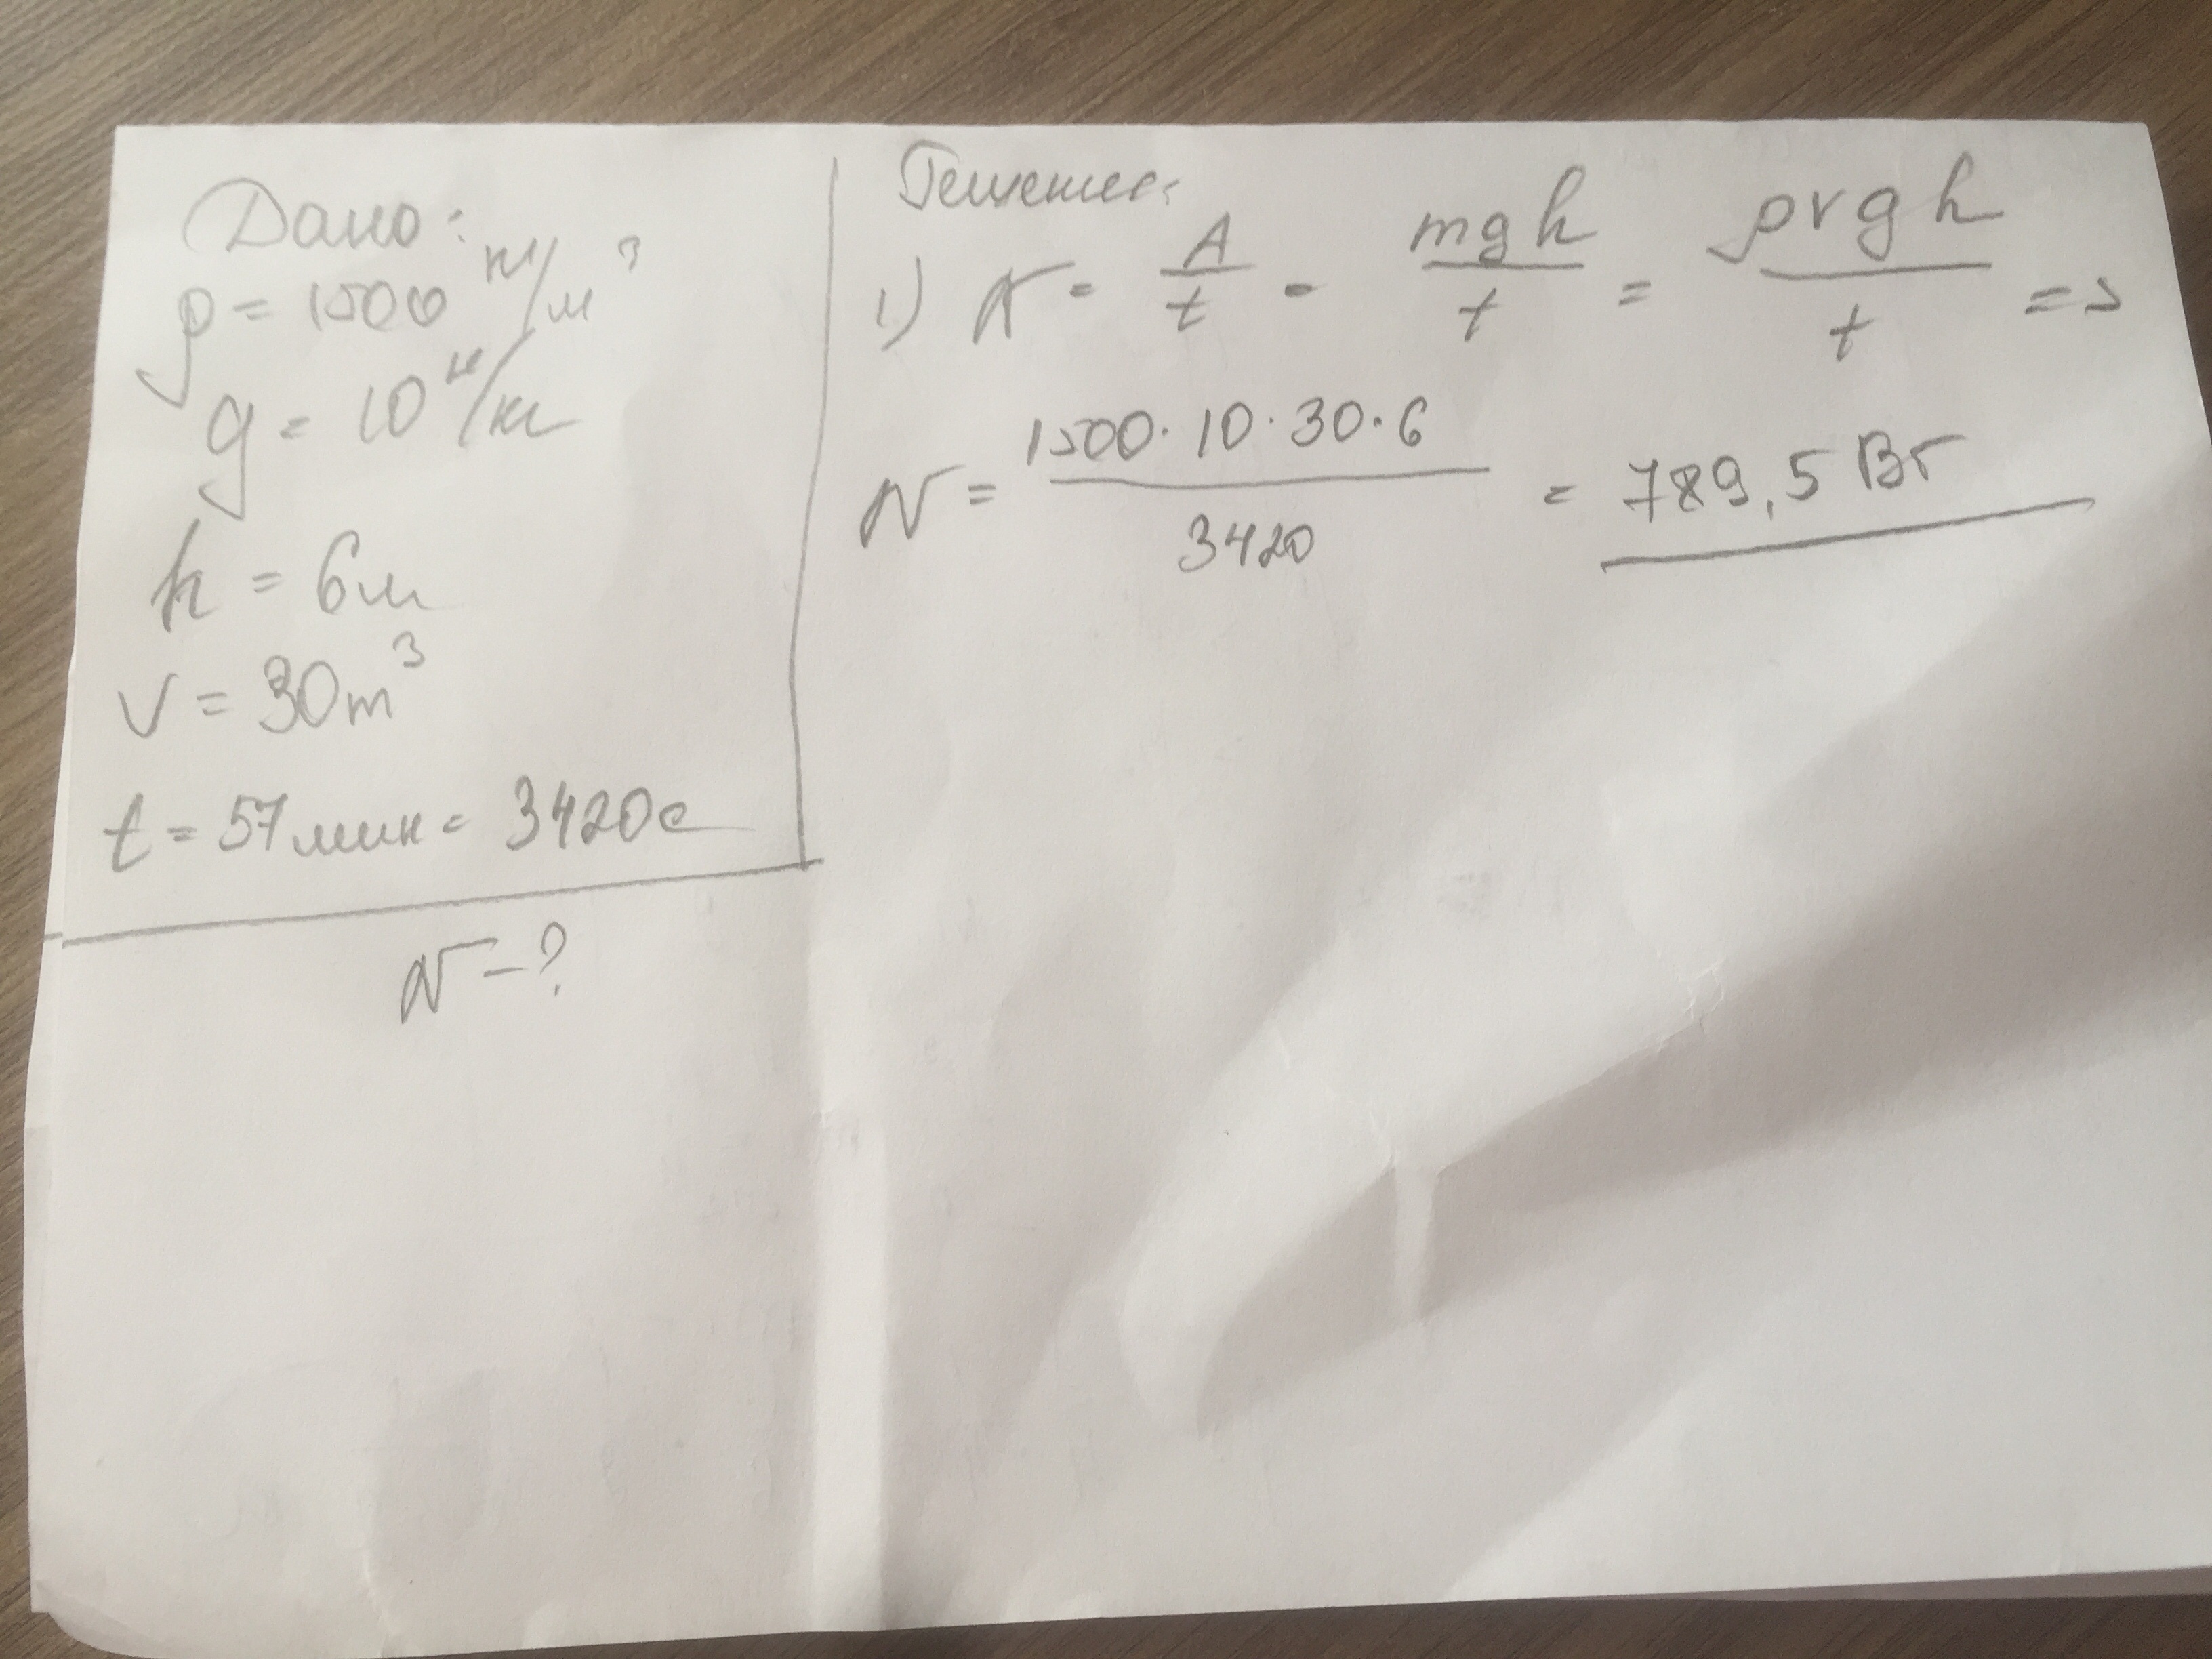 Дано:
ρ = 1500 кг/м³
g = 10 н/кг
h = 6м
V = 30m³
t = 57мин = 3420с
N - ?
Решение:
1) N = A/t = mgh/t = ρVgh/t =>
N = 1500·10·30·6/3420 = 789,5 Вт